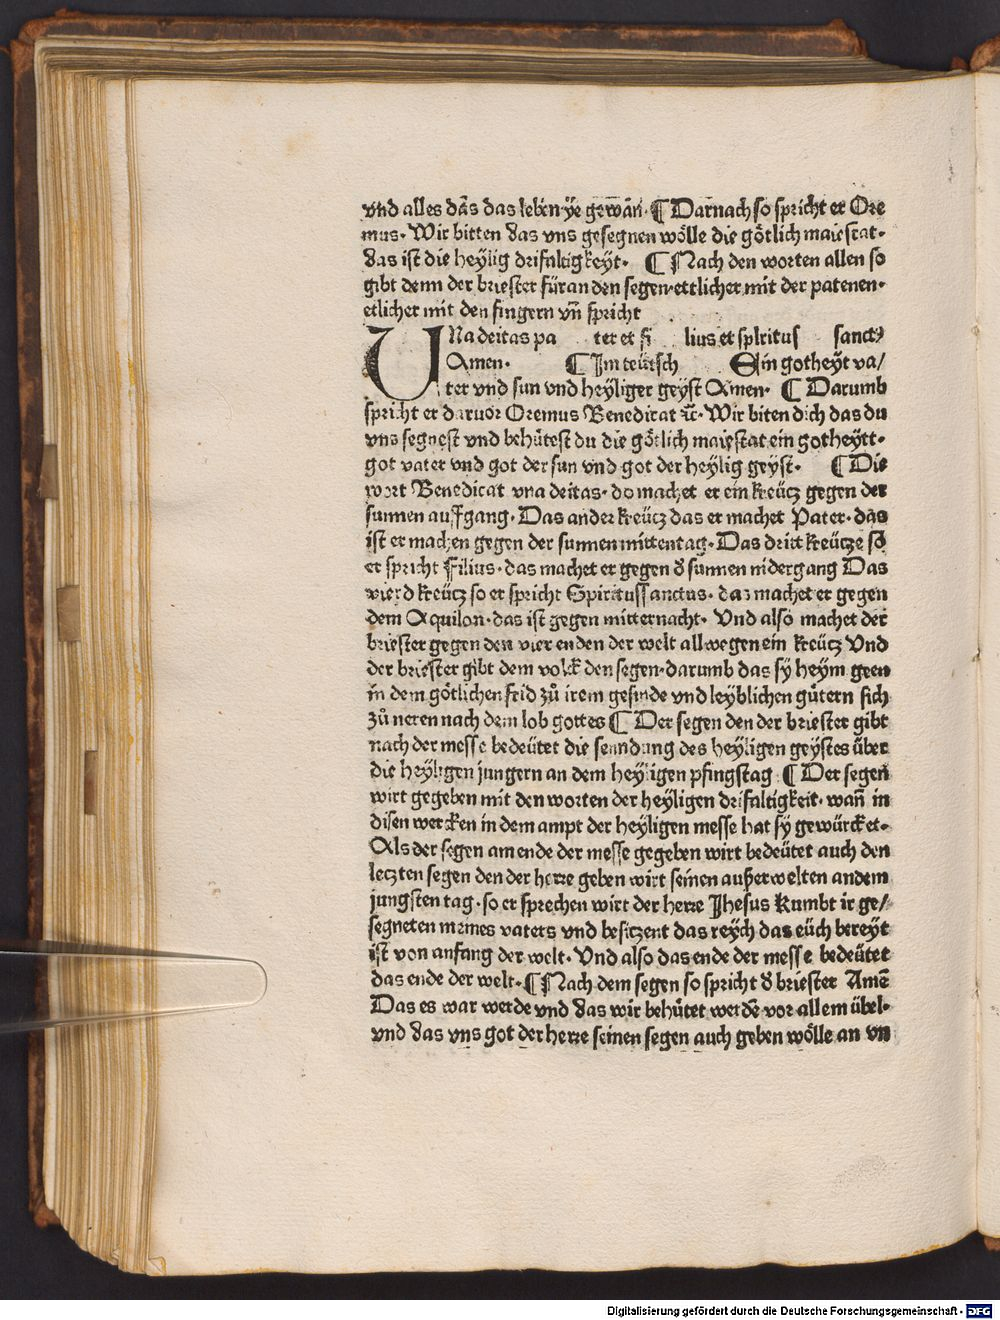 vnd alles das das leben ÿe gewan̄· ¶ Darnach so spricht er Ore
mus· Wir bitten das vns gesegnen wölle die götlich maiestat·
das ist die heÿlig drifaltigkeÿt· ¶ Nach den worten allen so
gibt denn der briester für an den segen·ettlicher mit der patenen·
etlicher mit den fingern vn̄ spricht
UNa deitas pa ter et fi lius et spiritus sanctꝰ
Amen· ¶ Im teütsch Ein gotheÿt va/
ter vnd sun vnd heÿliger geÿst Amen· ¶ Darumb
spricht er daruor Oremus Benedicat ꝛc̄· Wir biten dich das du
vns segnest vnd behütest du die götlich maiestat ein gotheÿtt·
got vater vnd got der sun vnd got der heÿlig geÿst· ¶ Die
wort Benedicat vna deitas· do machet er ein kreücz gegen der
sunnen auffgang· Das ander kreücz das er machet Pater· das
ist er machen gegen der sunnen mittentag· Das dritt kreücze so
er spricht Filius· das machet er gegen d̕ sunnen nidergang Das
vierd kreücz so er spricht Spiritussanctus· daz machet er gegen
dem Aquilon· das ist gegen mitternacht· Vnd also machet der
briester gegen den vier enden der welt allwegen ein kreücz Vnd
der briester gibt dem volck den segen· darumb das sÿ heÿm geen
in dem götlichen frid zů irem gesinde vnd leÿblichen gütern sich
zů neren nach dem lob gottes ¶ Der segen den der briester gibt
nach der messe bedeütet die senndung des heÿligen geÿstes über
die heÿligen jungern an dem heÿligen pfingstag ¶ Der segen
wirt gegeben mit den worten der heÿligen drifaltigkeit· wan̄ in
disen wercken in dem ampt der heÿligen messe hat sÿ gewürcket·
Als der segen am ende der messe gegeben wirt bedeütet auch den
leczten segen den der herre geben wirt seinen außerwelten an dem
jungsten tag· so er sprechen wirt der herre Jhesus Kumbt ir ge/
segneten meines vaters vnd besiczent das reÿch das eüch bereÿt
ist von anfang der welt· Vnd also das ende der messe bedeütet
das ende der welt· ¶ Nach dem segen so spricht d̕ briester Amē
Das es war werde vnd das wir behütet werdē vor allem übel·
vnd das vns got der herre seinen segen auch geben wölle an vn
Digitalisierung gefördert durch die Deutsche Forschungsgemeinschaft - DFG